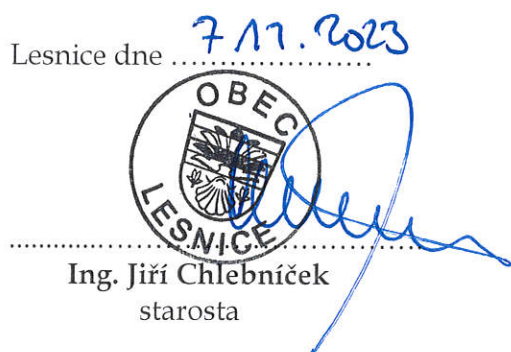 Lesnice dne 7 11. 2023
OBEC
LESNICE
Ing. Jiří Chlebníček
starosta